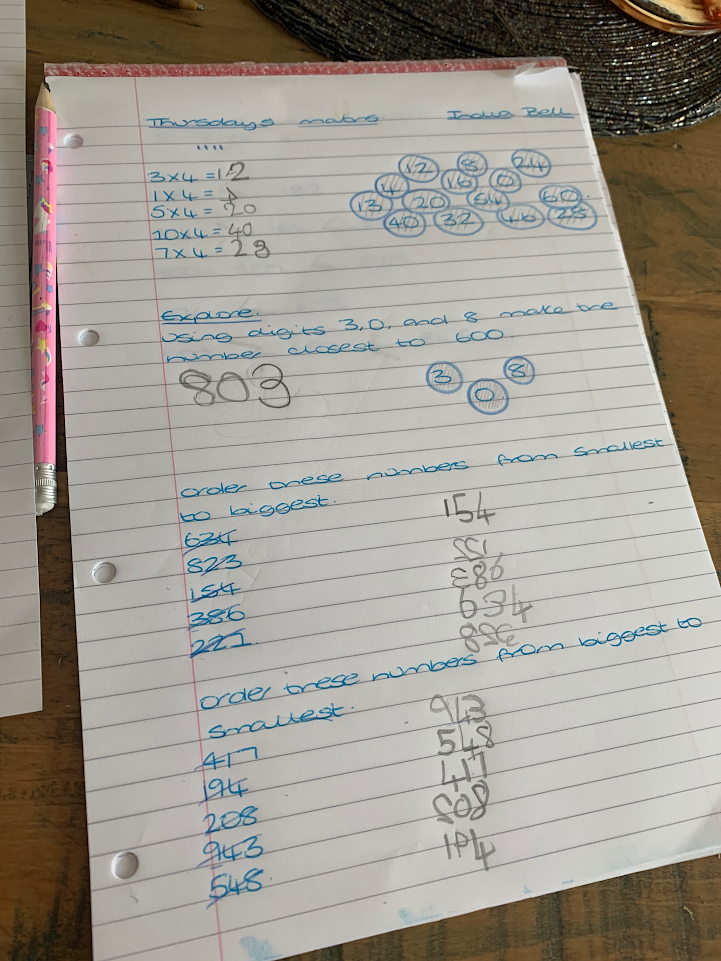 Thursdays maths India Bell
3x4 = 12
1x4 =
5x4 = 20
10x4 = 40
7x4 = 28
12 8 24
4 16 0
13 20 64 60
40 32 46 28
Explore.
using digits 3, 0, and 8 make the
number closest to 600.
803
3 8
0
order these numbers from smallest
to biggest.
634
823
154
386
221
154
221
386
634
order these numbers from biggest to
smallest.
417
194
208
943
548
943
548
417
208
194